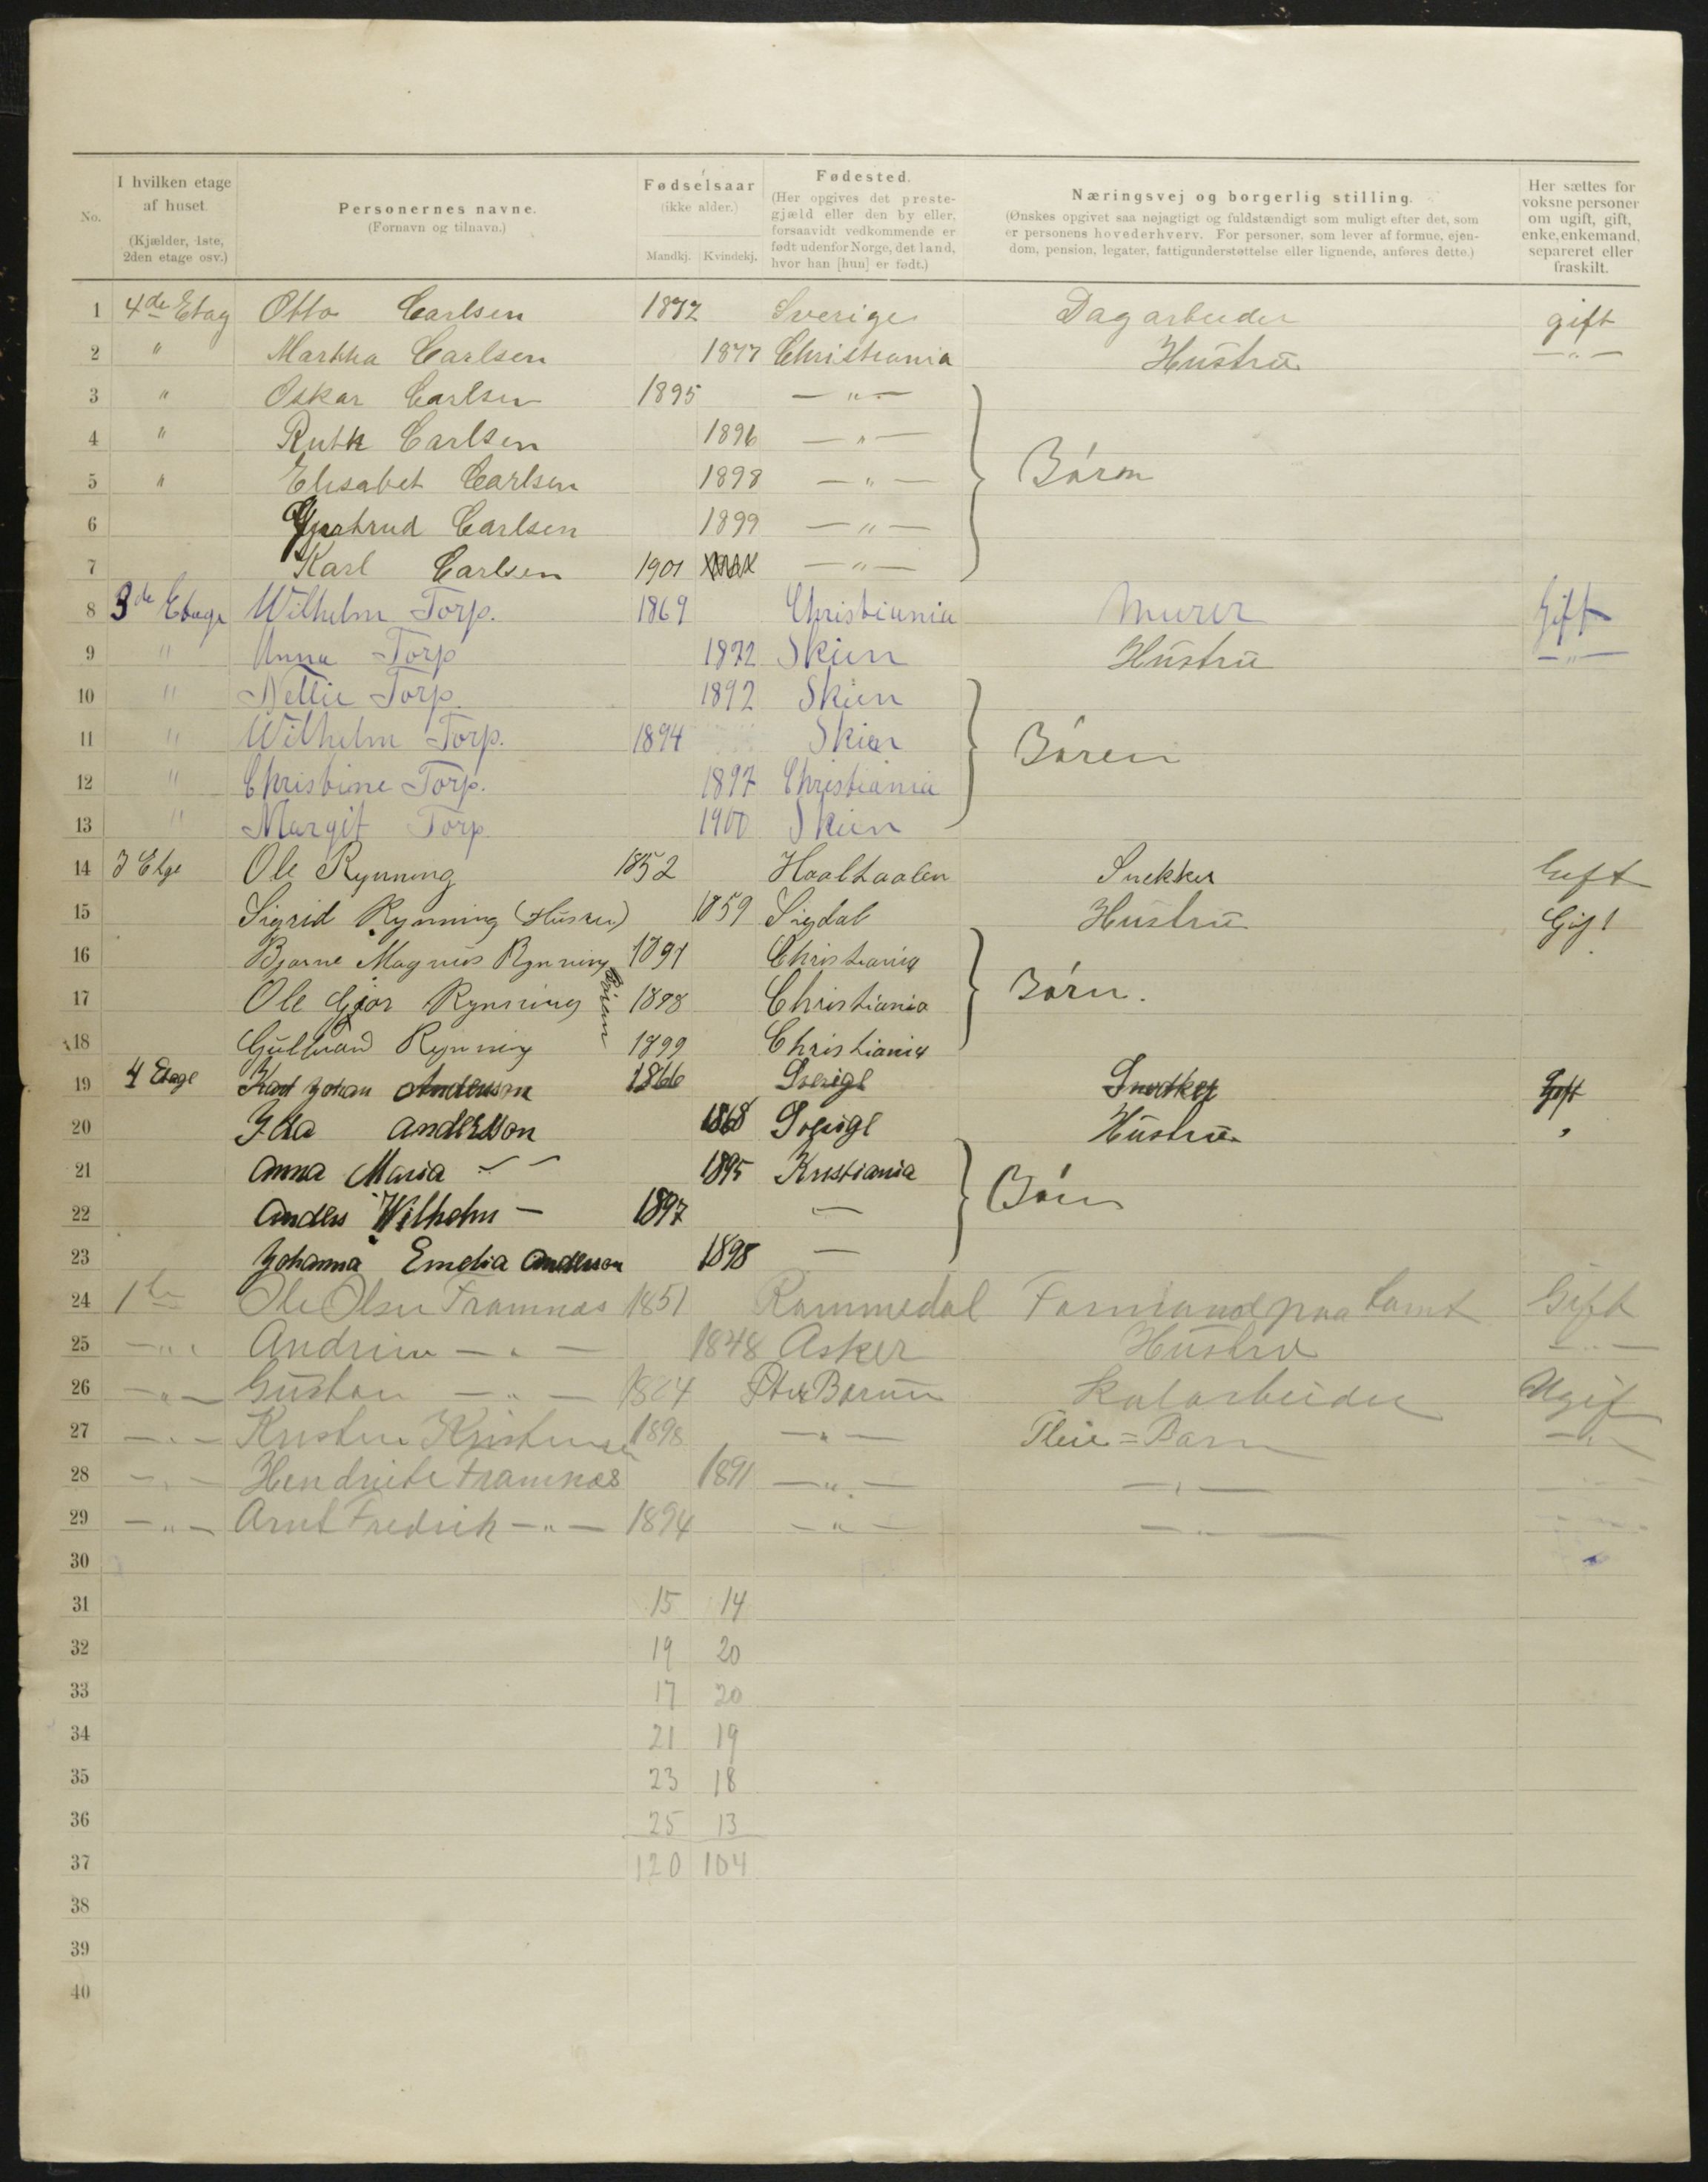 No.
I hvilken etage af huset. (Kjælder, 1ste, 2den etage osv.)
Personernes navne. (Fornavn og tilnavn.)
Fødselsaar (ikke alder.) Mandkj. Kvindekj.
Fødested. (Her opgives det prestegjæld eller den by eller, forsaavidt vedkommende er født udenfor Norge, det land, hvor han [hun] er født.)
Næringsvej og borgerlig stilling.
(Ønskes opgivet saa nøjagtigt og fuldstændigt som muligt efter det, som er personens hovederhverv. For personer, som lever af formue, ejendom, pension, legater, fattigunderstøttelse eller lignende, anføres dette.)
Her sættes for voksne personer om ugift, gift, enke, enkemand, separeret eller fraskilt.
1 4de Etag Otto Carlsen 1872 Sverige Dagarbeider gift
2 " Martha Carlsen 1877 Christiania Hustru — " —
3 " Oskar Carlsen 1895 — " —
4 " Ruth Carlsen 1896 — " —
5 " Elisabet Carlsen 1898 — " — Børn
6 Gjertrud Carlsen 1899 — " —
7 Karl Carlsen 1901 — " —
8 3de Etage Wilhelm Torp. 1869 Christiania Murer Gift
9 " Anna Torp 1872 Skien Hustru — " —
10 " Nellie Torp. 1892 Skien
11 " Wilhelm Torp. 1894 Skien Børen
12 " Christine Torp. 1897 Christiania
13 " Margit Torp 1900 Skien
14 3 Etge Ole Rynning 1852 Haaltaalen Snekker Gift
15 Sigrid Rynning (Hustru) 1859 Sigdal Hustru Gift
16 Bjarne Magnus Rynning 1891 Christiania
17 Ole Gjør Rynning 1898 Christiania Børn.
18 Gulbrand Rynning 1899 Christiania
19 4 Etage Karl Johan Anderson 1866 Sverige Snedker Gift
20 Ida andersson 1868 Sverige Hustru "
21 Anna Maria — — 1895 Kristiania
22 Anders Wilhelm — 1897 — Børn
23 Johanna Emelia Anderson 1898 —
24 1ste Ole Olsen Framnæs 1851 Rommedal Formand paa tomt Gift
25 — " — Andrine — " — 1848 Asker Hustru — " —
26 — " — Gustav — " — Bærum Kularbeider Ugift
27 — " — Kristen Kristensen 1898 — " — Pleie=Barn — " —
28 — " — Hendrikke Framnæs 1891 — " — — " — — " —
29 — " — Arnt Fredrik — " — 1894 — " — — " — — " —
30
31 15 14
32 19 20
33 17 20
34 21 19
35 23 18
36 25 13
37 120 104
38
39
40